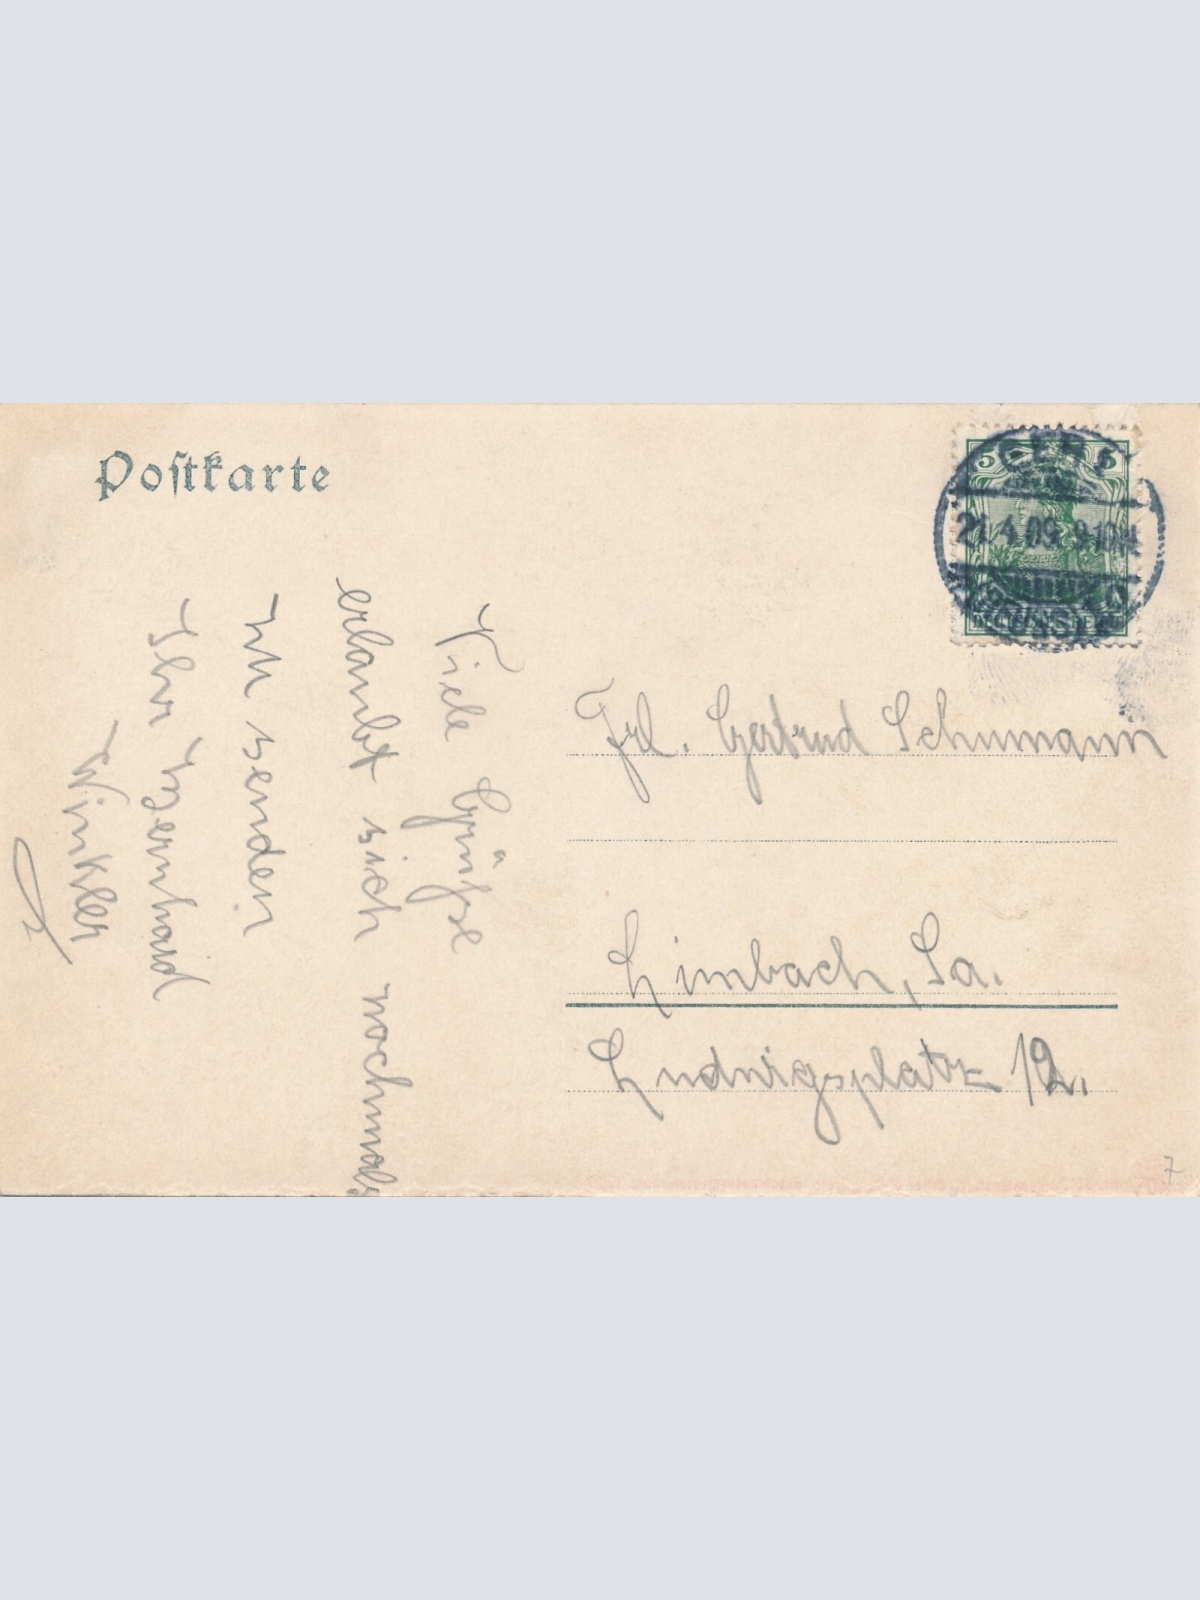 Postkarte
5 5
21.4.09. 9-10
Viele Grüsse
erlaubt sich nochmals
zu senden
Ihr Bernhard
Winkler
Frl. Gertrud Schumann
Limbach, Sa.
Ludwigsplatz 12.
7